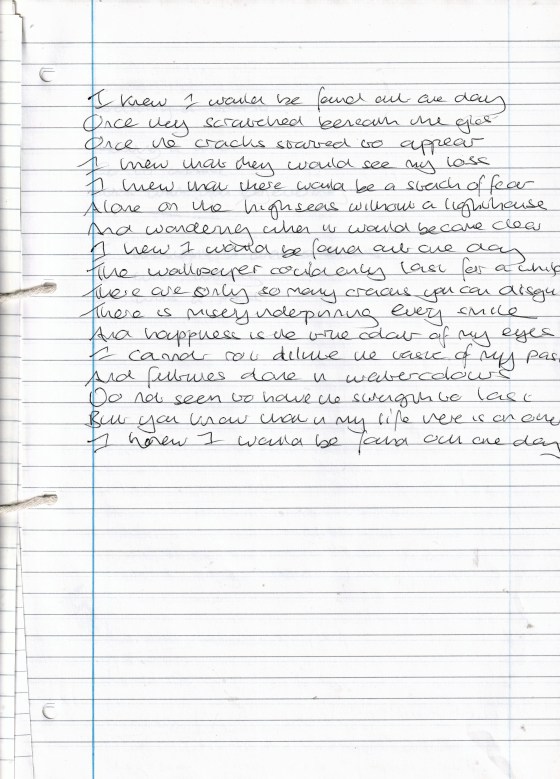 I knew I would be found out one day
Once they scratched beneath the
Once the cracks started to appear
I knew that they would see my loss
I knew that there would be a stench of fear
Alone on the highseas without a lighthouse
And wondering when it would become clear
I knew I would be found out one day
The wallpaper could only last for a while
There are only so many cracks you can disgu
There is misery underpinning every smile
And happiness is the true colour of my eyes
I cannot dilute the taste of my pas
And futures done in watercolours
Do not seem to have the strength to last
But you know that in my life there is an
I knew I would be found out one day